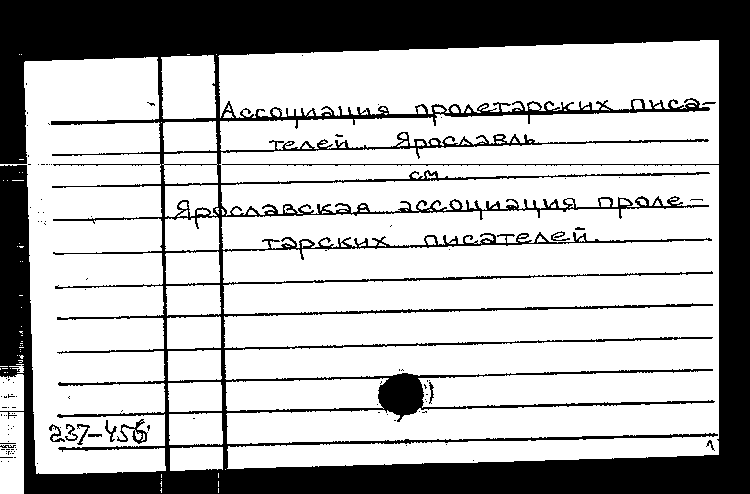 Ассоциация пролетарских писа-
телей. Ярославль
см.
Ярославская ассоциация проле-
тарских писателей.
237-456